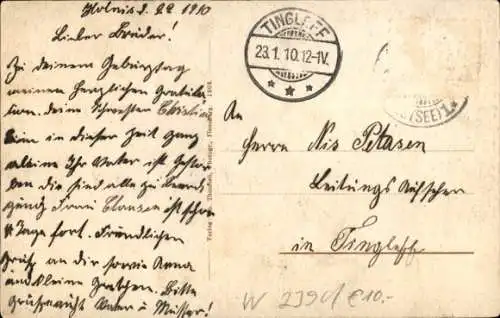 Holnis d. 22 1910
Lieber Bruder!
Zu deinem Geburtstag
meinen herzlichen Gratula
tion. deine Schwester Christine
bin in dieser Zeit ganz
alleine Ihr Vater ist gestor
ben die sind alle zu Beerdi
gung Frau Clausen ist schon
4 Tage fort. Freundlichen
Gruß an dir sowie Anna
und kleine Gretchen. Bitte
Grüße auch Vater u Mutter!
TINGLEFF
23.1.10.12-1V.
(SEE) 1
An
Herrn Nis Petersen
Leitungs Aufseher
in Tingleff
W 2390/ €10.-